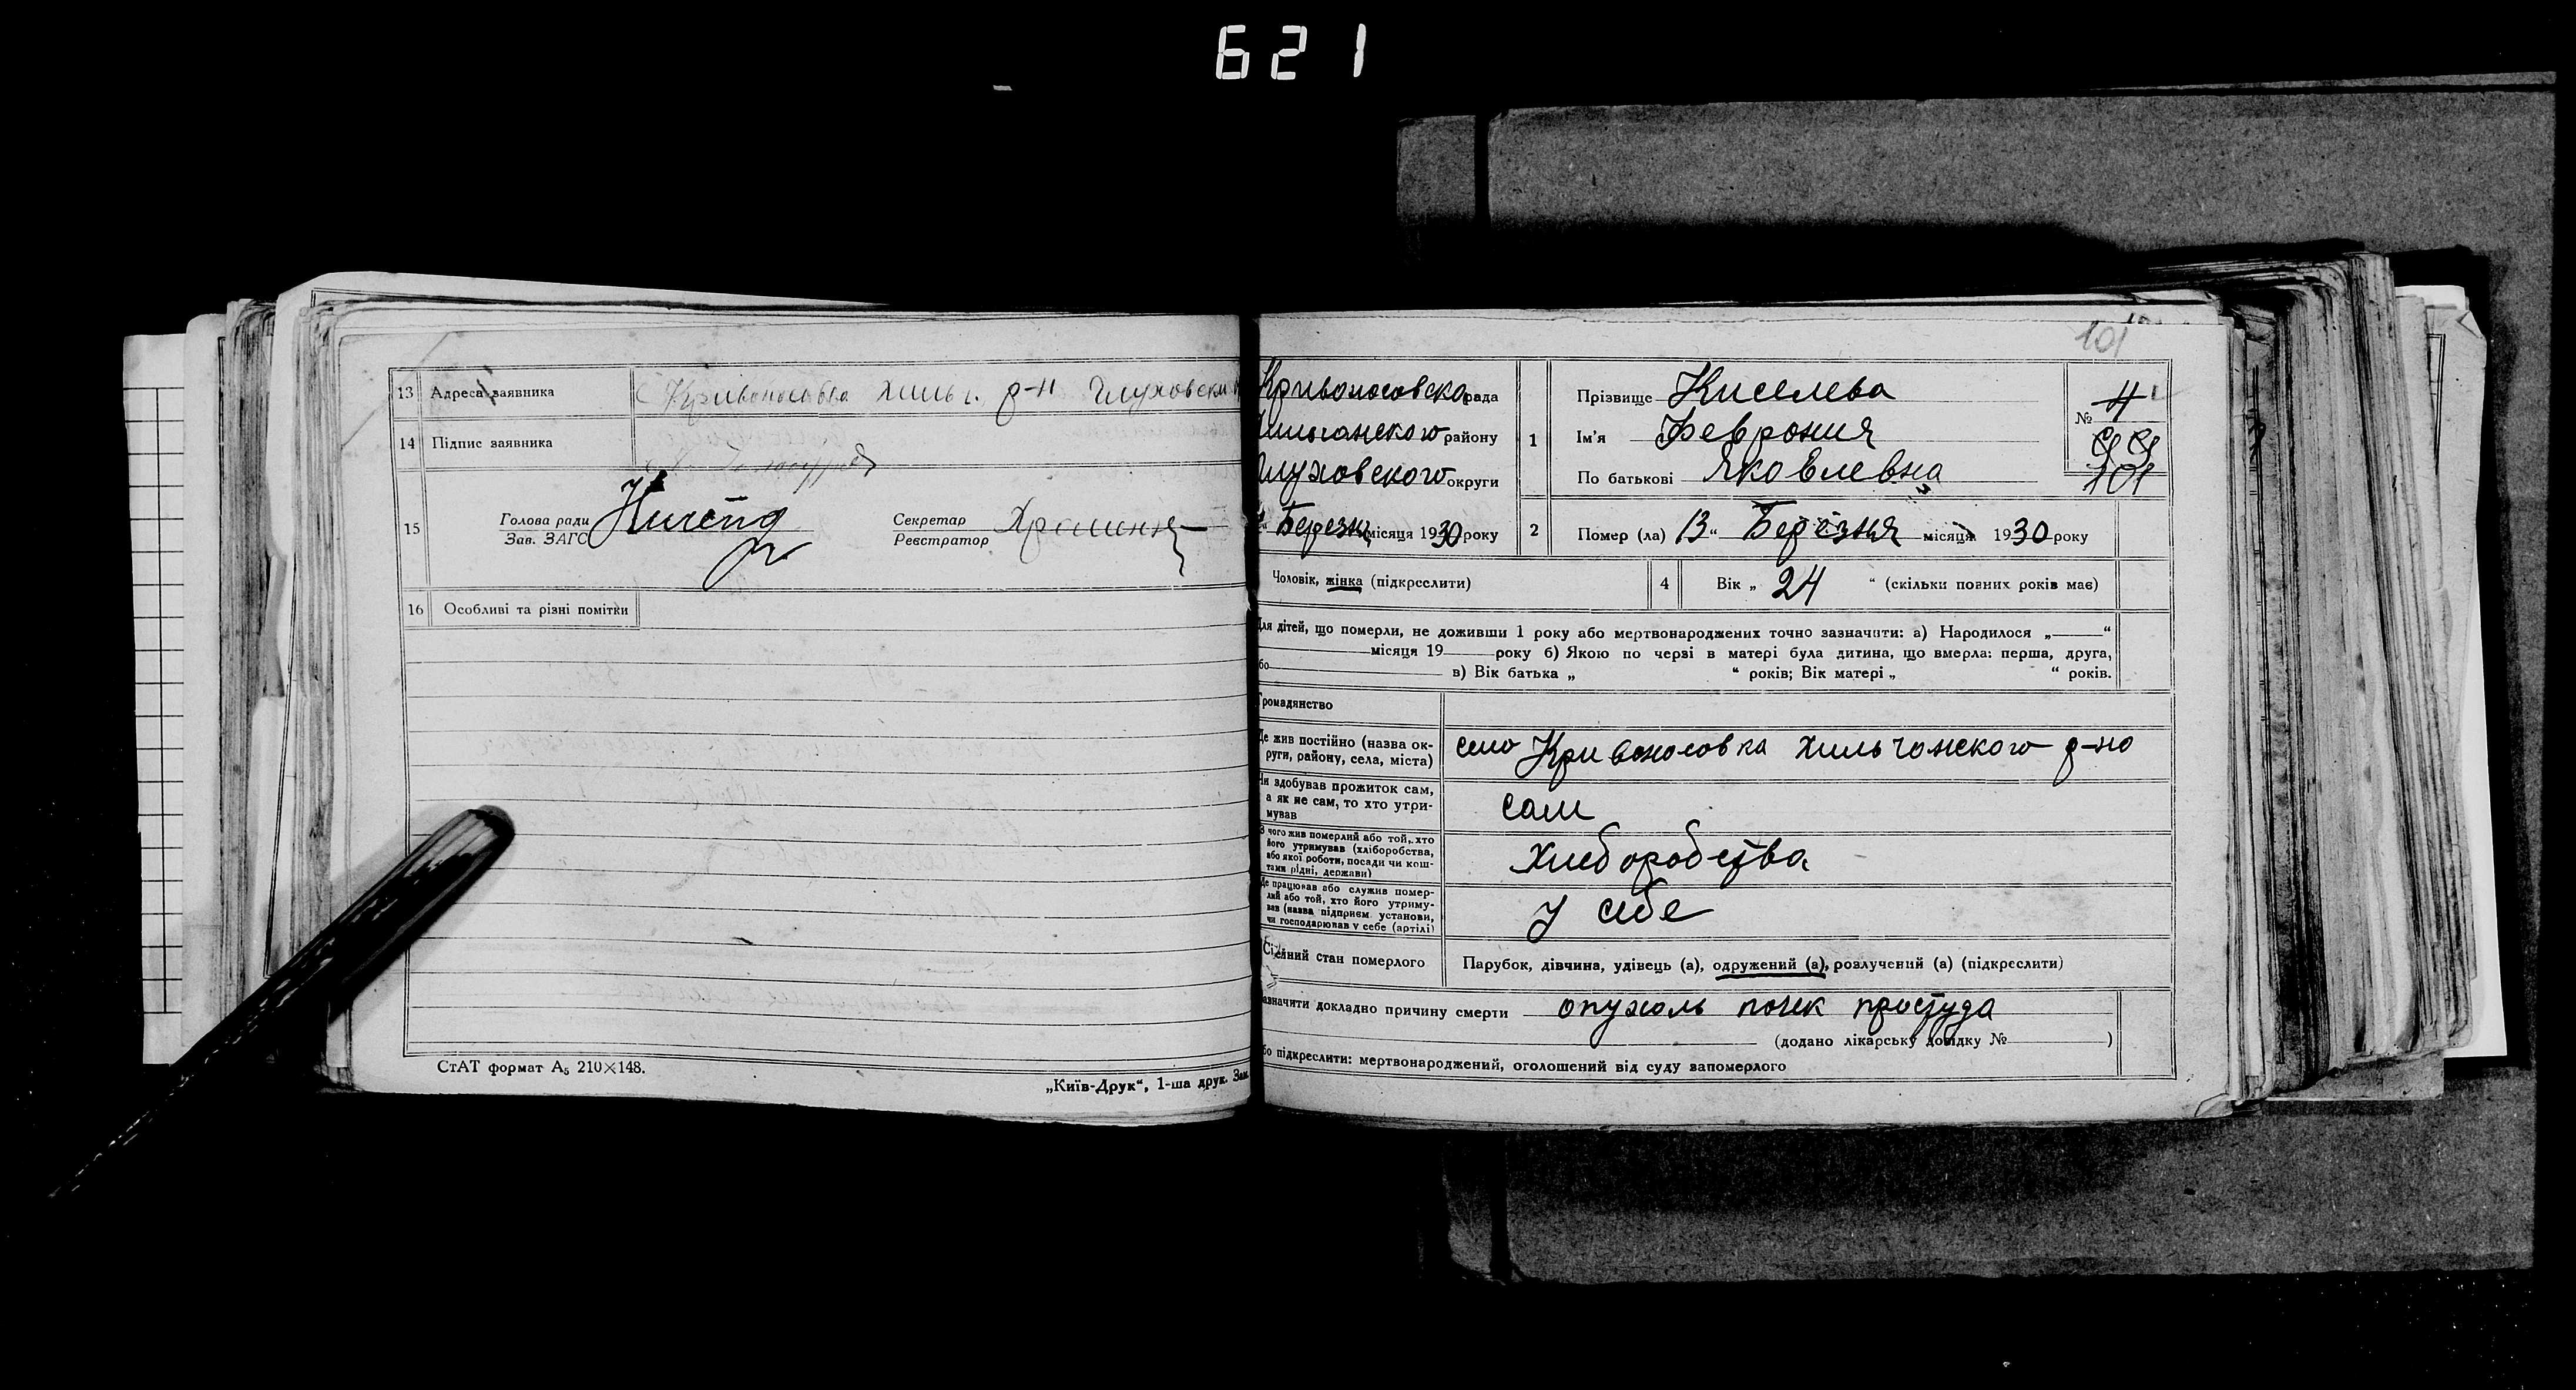 621
13 Адреса заявника Кривоносовка хильч. р-н Глуховск
14 Підпис заявника
15 Голова ради
Зав. ЗАГС
Секретар
Реєстратор
16 Особливі та різні помітки
СтАТ формат А5 210×148.
„Київ-Друк“, 1-ша друк. Зам.
101
Кривоносовска рада
Хильчанского району
Глуховского округи
Березня місяця 1930 року
1 Прізвище Киселева
Ім'я Феврония
По батькові Яковлевна
№ 4
99
101
2 Помер (ла) 13 “ Березня місяця 1930 року
Чоловік, жінка (підкреслити)
4 Вік „ 24 “ (скільки повних років має)
Для дітей, що померли, не доживши 1 року або мертвонароджених точно зазначити: а) Народилося „ “
місяця 19 року б) Якою по черзі в матері була дитина, що вмерла: перша, друга,
або в) Вік батька „ “ років; Вік матері „ “ років.
Громадянство
Де жив постійно (назва ок-
руги, району, села, міста) село Кривоносовка хильчанского р-но
Чи здобував прожиток сам,
а як не сам, то хто утри-
мував сам
З чого жив померлий або той, хто
його утримував (хліборобства,
або якої роботи, посади чи кош-
тами рідні, держави) хлеборобства
Де працював або служив помер-
лий або той, хто його утриму-
вав (назва підприєм. установи,
чи господарював у себе (артілі) у себе
Сімейний стан померлого Парубок, дівчина, удівець (а), одружений (а), розлучений (а) (підкреслити)
Зазначити докладно причину смерти опухоль почек простуда
(додано лікарську довідку № )
або підкреслити: мертвонароджений, оголошений від суду запомерлого